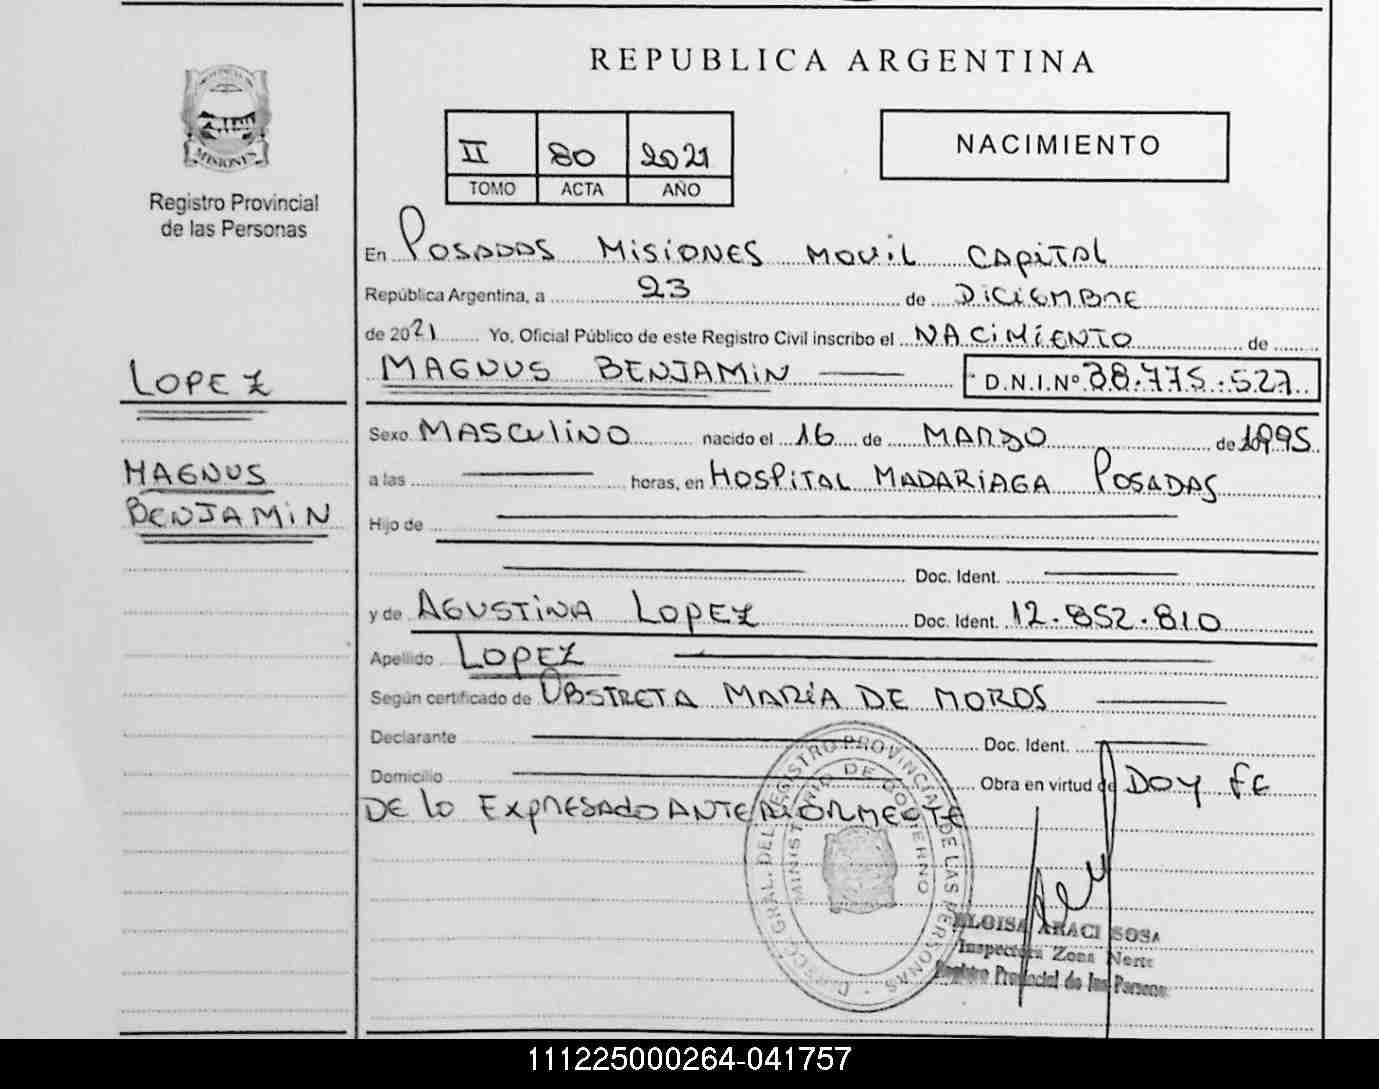 MISIONES
Registro Provincial
de las Personas
LOPEZ
MAGNUS
BENJAMIN
REPUBLICA ARGENTINA
II 80 2021
TOMO ACTA AÑO
NACIMIENTO
En POSADAS MISIONES MOVIL CAPITAL
República Argentina, a 23 de DICIEMBRE
de 2021 Yo, Oficial Público de este Registro Civil inscribo el NACIMIENTO de
MAGNUS BENJAMIN D.N.I.Nº 38.775.527
Sexo MASCULINO nacido el 16 de MARZO de 1995
a las horas, en HOSPITAL MADARIAGA POSADAS
Hijo de
Doc. Ident.
y de AGUSTINA LOPEZ Doc. Ident. 12.852.810
Apellido LOPEZ
Según certificado de OBSTRETA MARÍA DE MOROS
Declarante Doc. Ident.
Domicilio Obra en virtud de DOY FE
DE LO EXPRESADO ANTERIORMENTE
DIRECC. GRAL. DEL REGISTRO PROVINCIAL DE LAS PERSONAS
MINISTERIO DE GOBIERNO
ELOISA ARACI SOSA
Inspectora Zona Norte
Registro Provincial de las Personas
111225000264-041757